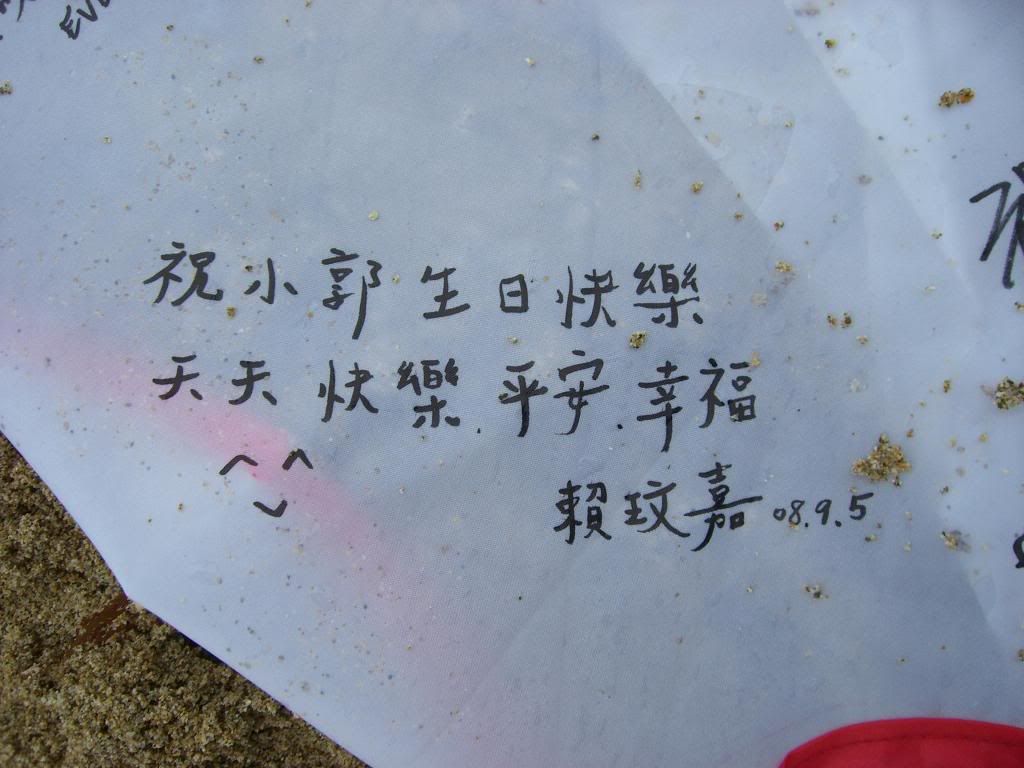 祝小郭生日快樂
天天快樂.平安.幸福
^ ^
賴玟嘉 08.9.5